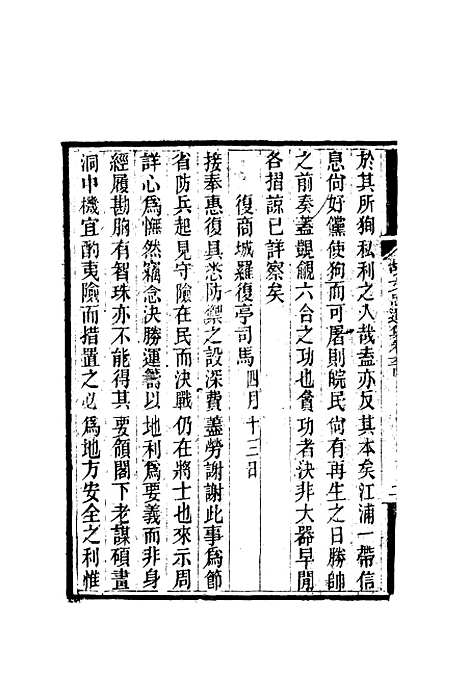 於其所狥私利之人哉盍亦反其本矣江浦一帶信
息尙好儻使狗而可屠則皖民尙有再生之日勝帥
之前奏蓋覬覦六合之功也貪功者決非大器早閒
各摺諒已詳察矣
復商城羅復亭司馬 四月十三日
接奉惠復具悉防禦之設深費藎勞謝謝此事爲節
省防兵起見守險在民而決戰仍在將士也來示周
詳心爲憮然竊念決勝運籌以地利爲要義而非身
經履勘胸有智珠亦不能得其要領閣下老謀碩畫
洞中機宜酌夷險而措置之必爲地方安全之利惟